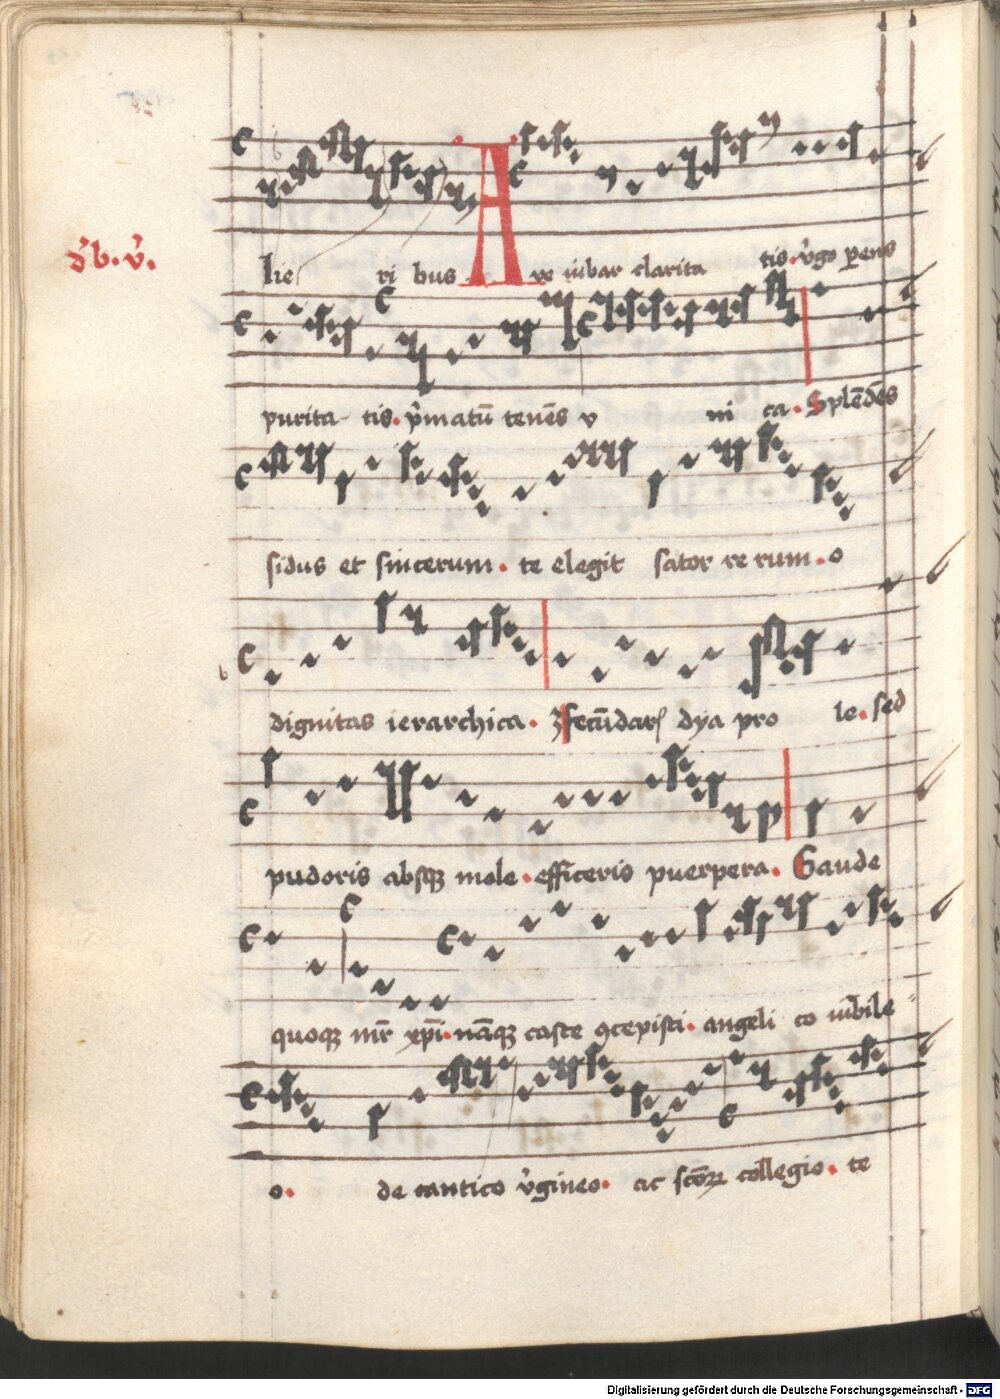 d̄b. v̄.
lie ri bus Ave iubar clarita tis. v̄go p̲ens
purita tis. p̄matū tenēs v ni ca. Splēdēs
sidus et sincerum. te elegit sator re rum. o
dignitas ierarchica. secūdar dya pro le. sed
pudoris absqꝫ mole. efficeris puerpera. Gaude
quoqꝫ mr̄ xp̄i. nāqꝫ caste ꝯcepisti. angeli co iubile
o. de cantico v̄gineo. ac scōꝝ collegio. te
Digitalisierung gefördert durch die Deutsche Forschungsgemeinschaft - DFG